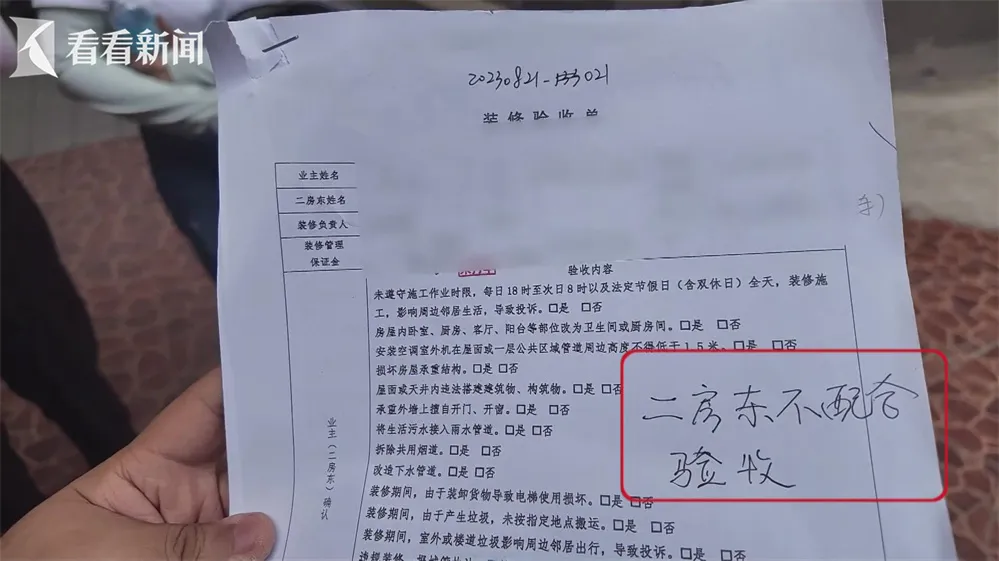 看看新闻
20230821-
装修验收单
手)
业主姓名
二房东姓名
装修负责人
装修管理
保证金
验收内容
未遵守施工作业时限，每日18时至次日8时以及法定节假日（含双休日）全天，装修施
工，影响周边邻居生活，导致投诉。□是 □否
房屋内卧室、厨房、客厅、阳台等部位改为卫生间或厨房间。□是 □否
安装空调室外机在屋面或一层公共区域管道周边高度不得低于1.5米。□是 □否
损坏房屋承重结构。□是 □否
屋面或天井内违法搭建建筑物、构筑物。□是 □否
承重外墙上擅自开门、开窗。□是 □否
将生活污水接入雨水管道。□是 □否
拆除共用烟道。□是 □否
改造下水管道。□是 □否
装修期间，由于装卸货物导致电梯使用损坏。□是 □否
装修期间，由于产生垃圾，未按指定地点搬运。□是 □否
装修期间，室外或楼道垃圾影响周边邻居出行，导致投诉。□是 □否
业主（二房东）确认
二房东不配合
验收